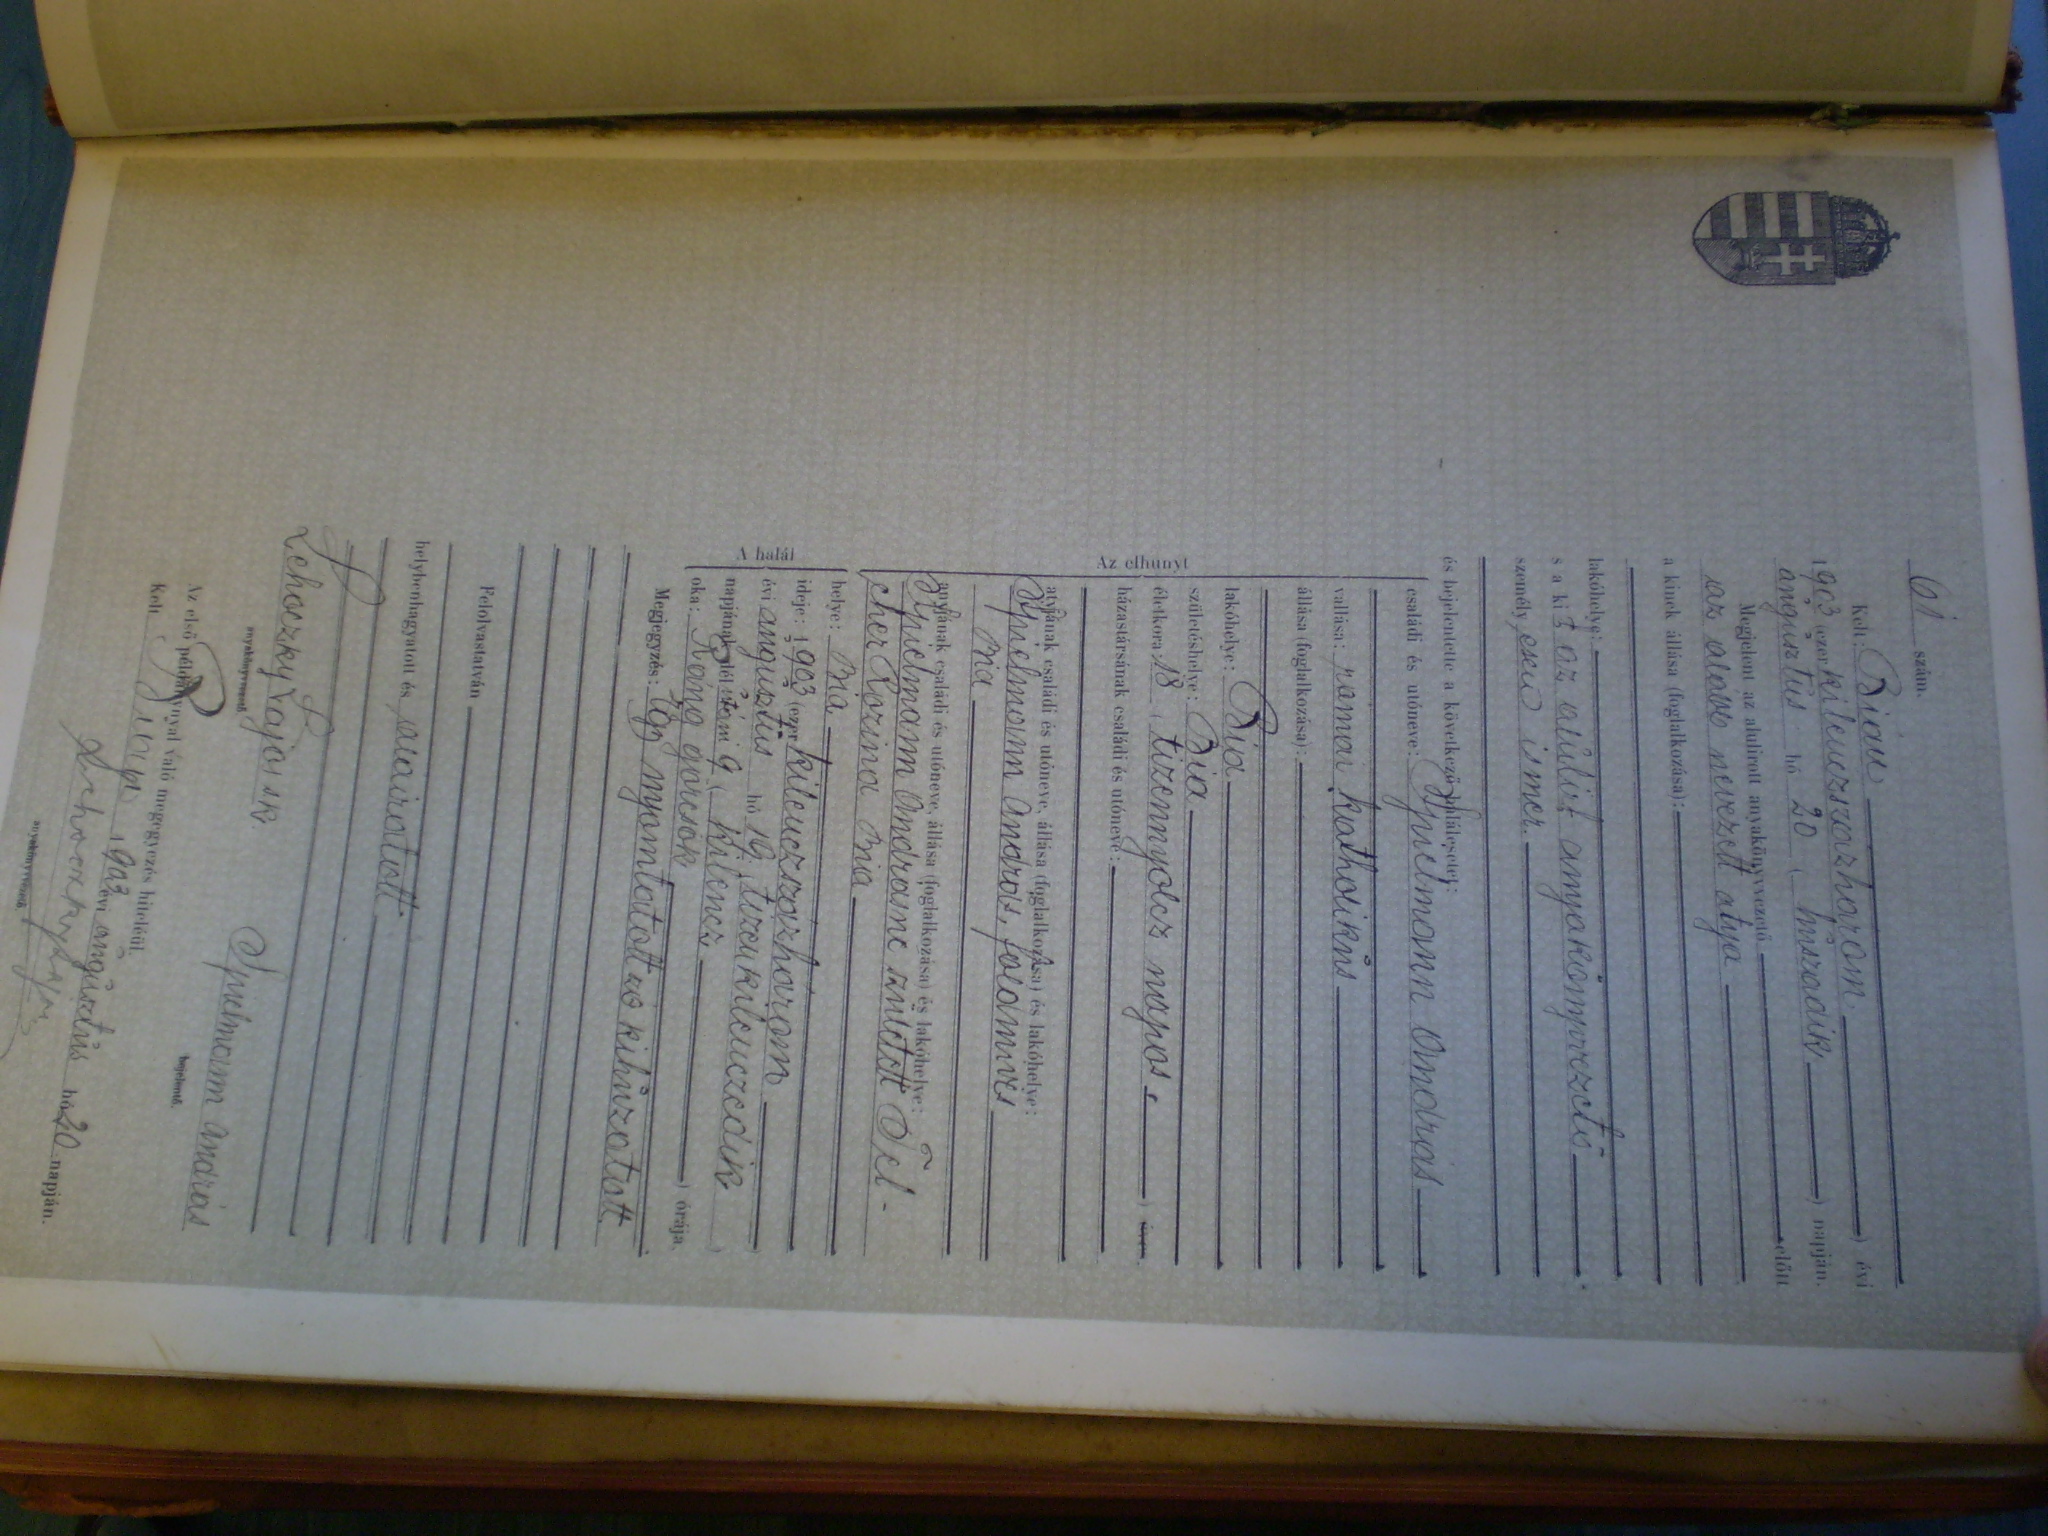 61 szám.
Kelt: Bián
1903 (ezer kilenczszázhárom ) évi
augusztus hó 20 ( huszadik ) napján.
Megjelent az alulirott anyakönyvvezető előtt
az alább nevezett atyja
a kinek állása (foglalkozása):
lakóhelye:
s a ki t az alulírt anyakönyvvezető
személyesen ismer.
és bejelentette a következő halálesetet:
Az elhunyt
családi és utóneve: Spielmann András
vallása: római katholikus
állása (foglalkozása):
lakóhelye: Bia
születéshelye: Bia
életkora: 18 ( tizennyolcz napos. ) éves.
házastársának családi és utóneve:
atyjának családi és utóneve, állása (foglalkozása) és lakóhelye:
Spielmann András, földmivés
Bia
anyjának családi és utóneve, állása (foglalkozása) és lakóhelye:
Spielmann Andrásné született Fel-
cher Rozina Bia
A halál
helye: Bia
ideje: 1903 (ezer kilenczszázhárom )
évi augusztus hó 19 ( tizenkilenczedik )
napjának dél utáni 9 ( kilencz ) órája.
oka: Ráing görcsök
Megjegyzés: Egy nyomtatott szó kihúzatott
Felolvastatván
helybenhagyatott és aláiratott
Lehoczky Lajos sk.
anyakönyvvezető
Spielmann András
bejelentő.
Az első példánynyal való megegyezés hiteléül.
Kelt Bián, 1903 évi augusztus hó 20 napján.
Lehoczky Lajos
anyakönyvvezető.